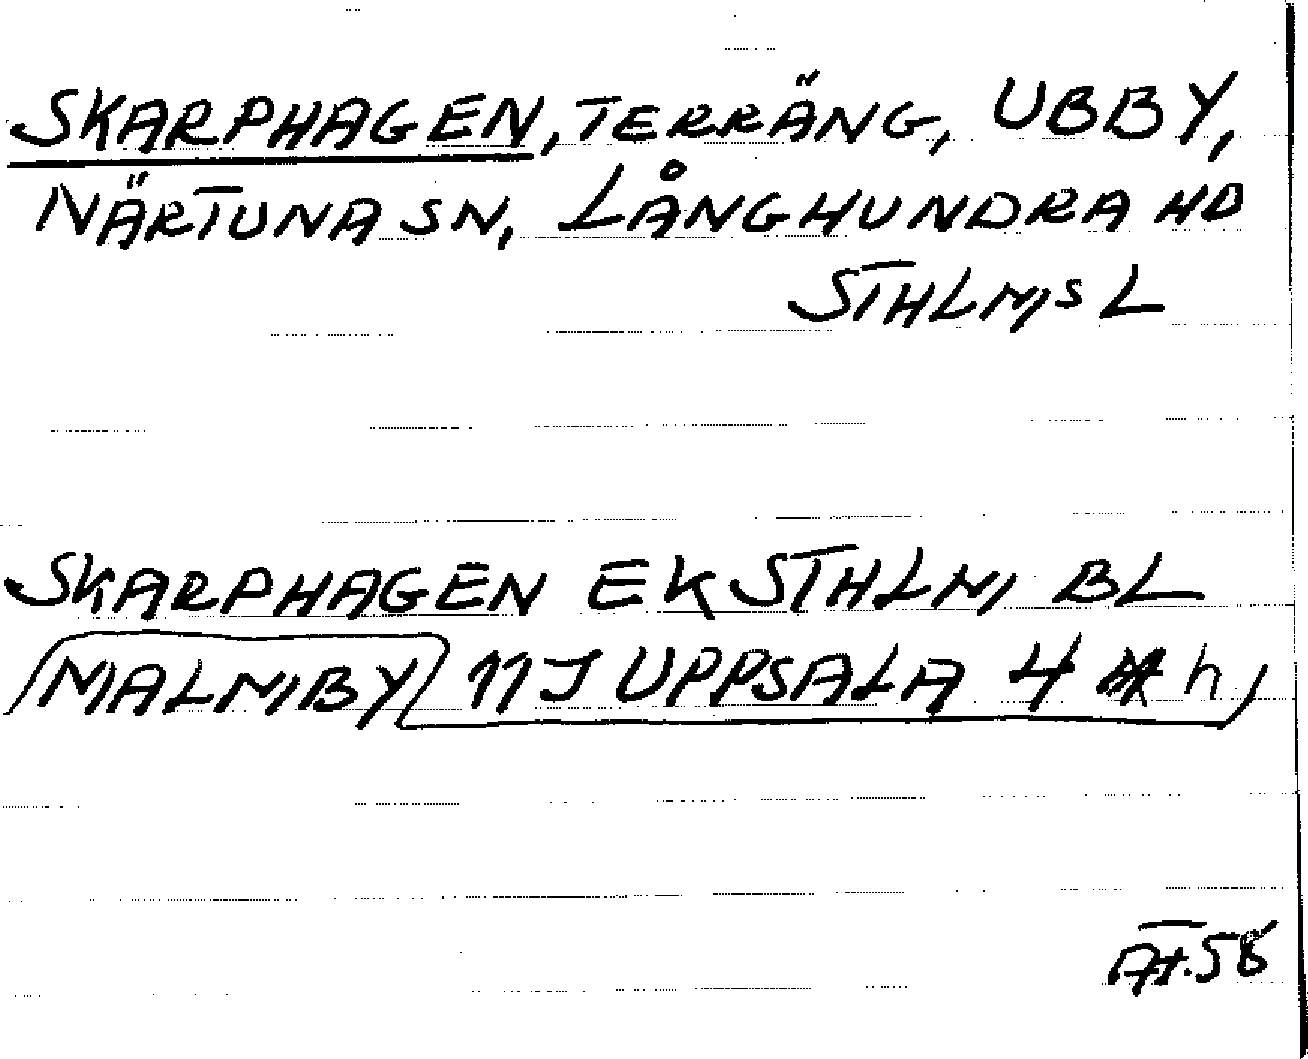 SKARPHAGEN, TERRÄNG, UBBY,
NÄRTUNA SN, LÅNGHUNDRA HD
STHLMS L
SKARPHAGEN EK STHLM BL
MALMBY 11J UPPSALA 4 h,
58